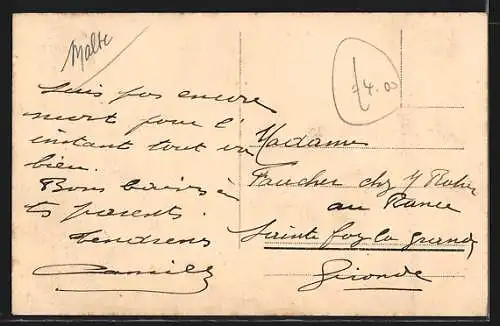 Malte
Suis pas encore
mort pour l'
instant tout va
bien.
Bons baisers à
ts parents.
tendresse
Camille
£4.00
Madame
Faucher chez Mr Robin
au Rance
Sainte foy la grande
Gironde